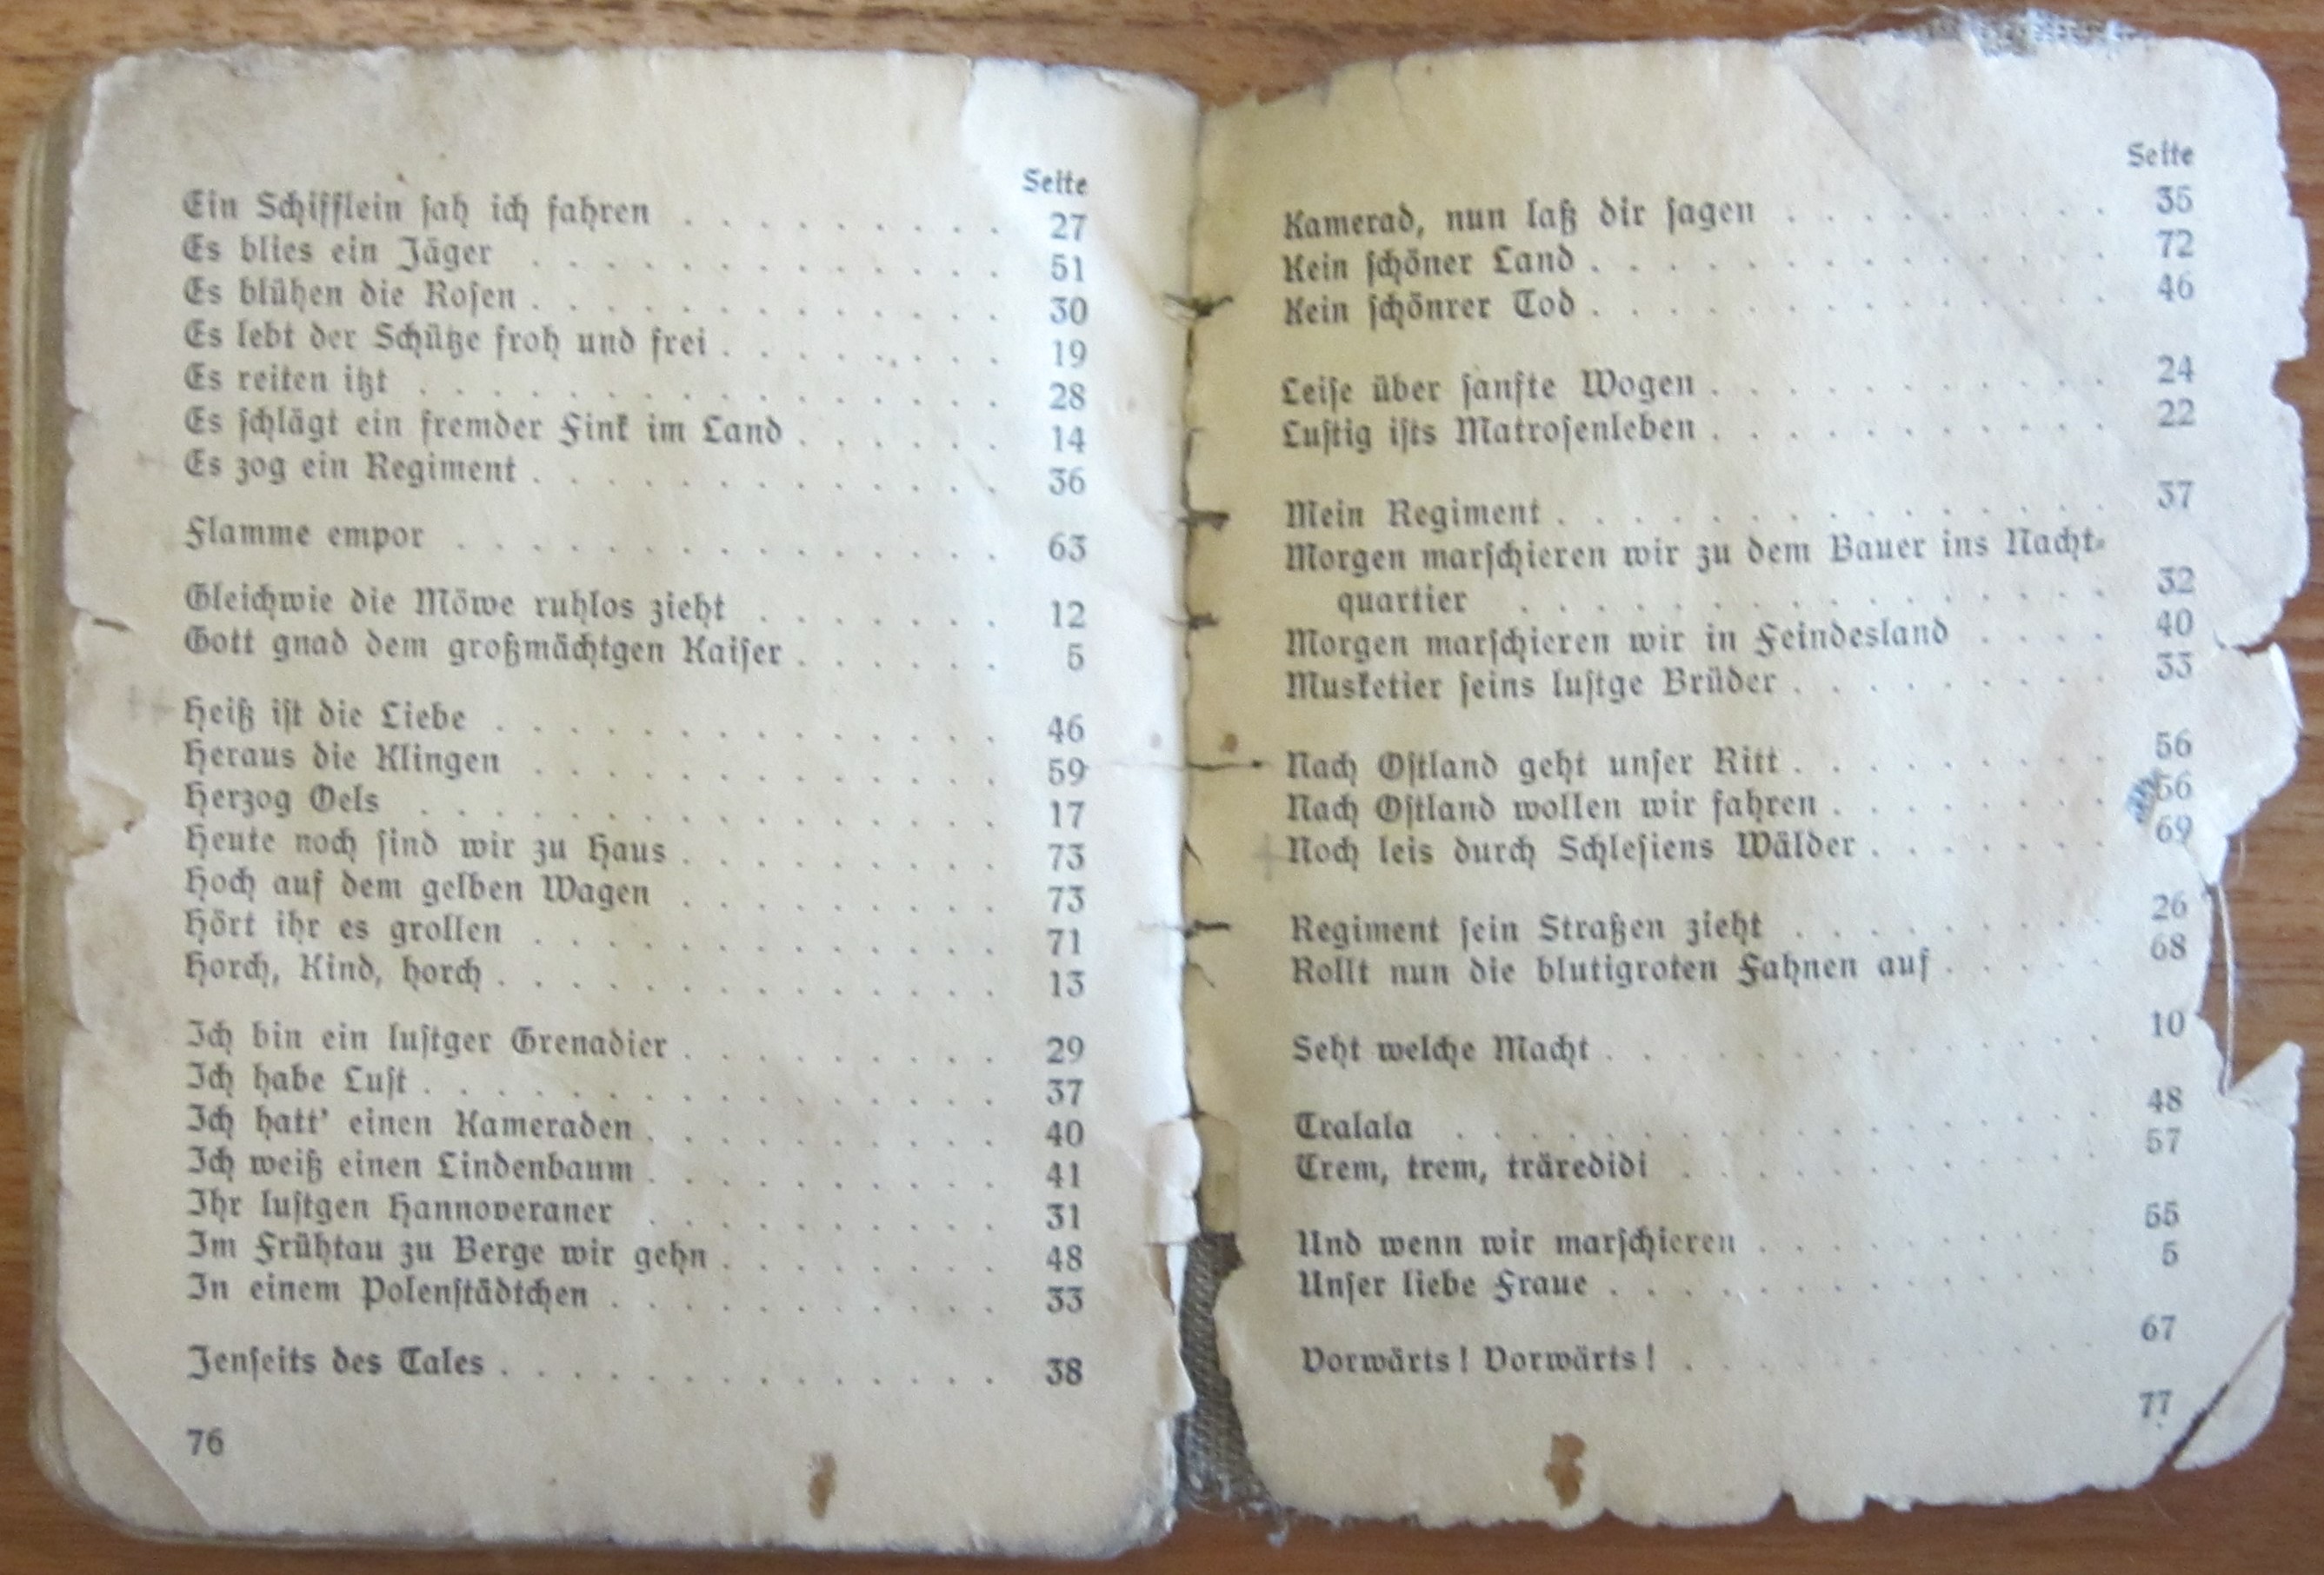 Seite
Ein Schifflein sah ich fahren . . . . . . . . . 27
Es blies ein Jäger . . . . . . . . . . . . . 51
Es blühen die Rosen . . . . . . . . . . . . . 30
Es lebt der Schütze froh und frei . . . . . . . . 19
Es reiten itzt . . . . . . . . . . . . . . . 28
Es schlägt ein fremder Fink im Land . . . . . . 14
Es zog ein Regiment . . . . . . . . . . . . . 36
Flamme empor . . . . . . . . . . . . . . 63
Gleichwie die Möwe ruhlos zieht . . . . . . . 12
Gott gnad dem großmächtgen Kaiser . . . . . . 5
Heiß ist die Liebe . . . . . . . . . . . . . . 46
Heraus die Klingen . . . . . . . . . . . . . 59
Herzog Oels . . . . . . . . . . . . . . . 17
Heute noch sind wir zu Haus . . . . . . . . . 73
Hoch auf dem gelben Wagen . . . . . . . . . 73
Hört ihr es grollen . . . . . . . . . . . . . 71
Horch, Kind, horch . . . . . . . . . . . . . . 13
Ich bin ein lustger Grenadier . . . . . . . . . 29
Ich habe Lust . . . . . . . . . . . . . . . . 37
Ich hatt' einen Kameraden . . . . . . . . . . 40
Ich weiß einen Lindenbaum . . . . . . . . . . 41
Ihr lustgen Hannoveraner . . . . . . . . . . 31
Im Frühtau zu Berge wir gehn . . . . . . . . 48
In einem Polenstädtchen . . . . . . . . . . . 33
Jenseits des Tales . . . . . . . . . . . . . . 38
76
Seite
Kamerad, nun laß dir sagen . . . . . . . . . 35
Kein schöner Land . . . . . . . . . . . . . . 72
Kein schönrer Tod . . . . . . . . . . . . . . 46
Leise über sanfte Wogen . . . . . . . . . . . 24
Lustig ists Matrosenleben . . . . . . . . . . . 22
Mein Regiment . . . . . . . . . . . . . . . 37
Morgen marschieren wir zu dem Bauer ins Nacht-
quartier . . . . . . . . . . . . . . . . 32
Morgen marschieren wir in Feindesland . . . . 40
Musketier seins lustge Brüder . . . . . . . . . 33
Nach Ostland geht unser Ritt . . . . . . . . . 56
Nach Ostland wollen wir fahren . . . . . . . . 56
Noch leis durch Schlesiens Wälder . . . . . . . 69
Regiment sein Straßen zieht . . . . . . . . . 26
Rollt nun die blutigroten Fahnen auf . . . . . 68
Seht welche Macht . . . . . . . . . . . . . . 10
Tralala . . . . . . . . . . . . . . . . . . 48
Trem, trem, träredidi . . . . . . . . . . . . 57
Und wenn wir marschieren . . . . . . . . . . 55
Unser liebe Fraue . . . . . . . . . . . . . . 5
Vorwärts! Vorwärts! . . . . . . . . . . . . 67
77